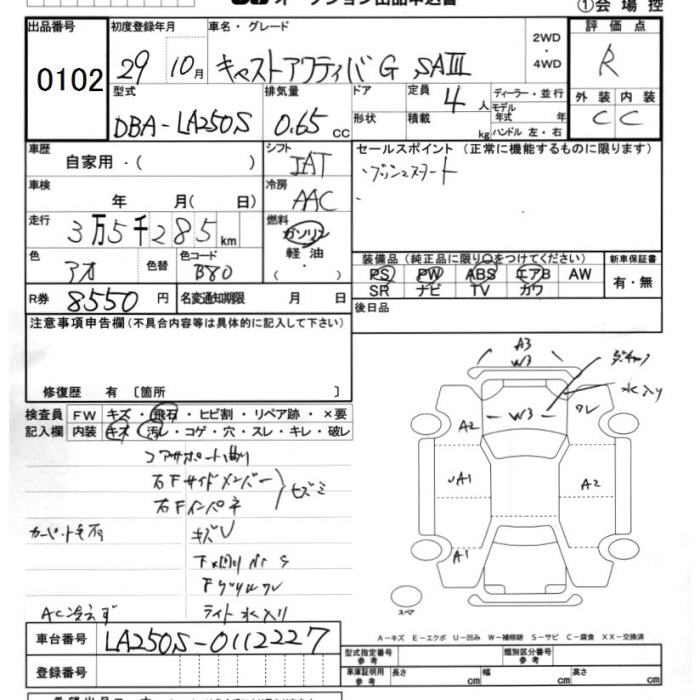 オークション出品申込書
①会場控
出品番号 初度登録年月 車名・グレード 2WD・4WD 評価点
0102 29 10月 キャストアクティバG SAIII R
型式 排気量 ドア 定員 4人 ディーラー・並行 外装 内装
DBA-LA250S 0.65cc 形状 積載 kg モデル年式 年 ハンドル 左・右 C C
車歴 シフト セールスポイント(正常に機能するものに限ります)
自家用・( ) IAT ・プッシュスタート
車検 冷房
年 月( 日) AAC
走行 燃料
3万5千285km ガソリン
軽油
・( )
色 色替 色コード 装備品(純正品に限り○をつけてください) 新車保証書
アオ B80 PS PW ABS エアB AW 有・無
SR ナビ TV カワ
R券 8550円 名変通知期限 月 日 後日品
注意事項申告欄(不具合内容等は具体的に記入して下さい)
修復歴 有 〔箇所 〕
検査員 FW キズ・飛石・ヒビ割・リペア跡・×要
記入欄 内装 キズ・汚レ・コゲ・穴・スレ・キレ・破レ
コアサポート曲り
右Fサイドメンバー
右Fインパネ
ヒズミ
キズU
下廻りサビ S
Fグリルワレ
AC冷えず ライト水入り
A3
W3
W3
ワレ
水入り
A2
A1
A2
A1
スペア
A-キズ E-エクボ U-凹み W-補修跡 S-サビ C-腐食 XX-交換済
車台番号 LA250S-0112227
型式指定番号 参考 類別区分番号 参考
登録番号 車庫証明用 参考 長さ cm 幅 cm 高さ cm